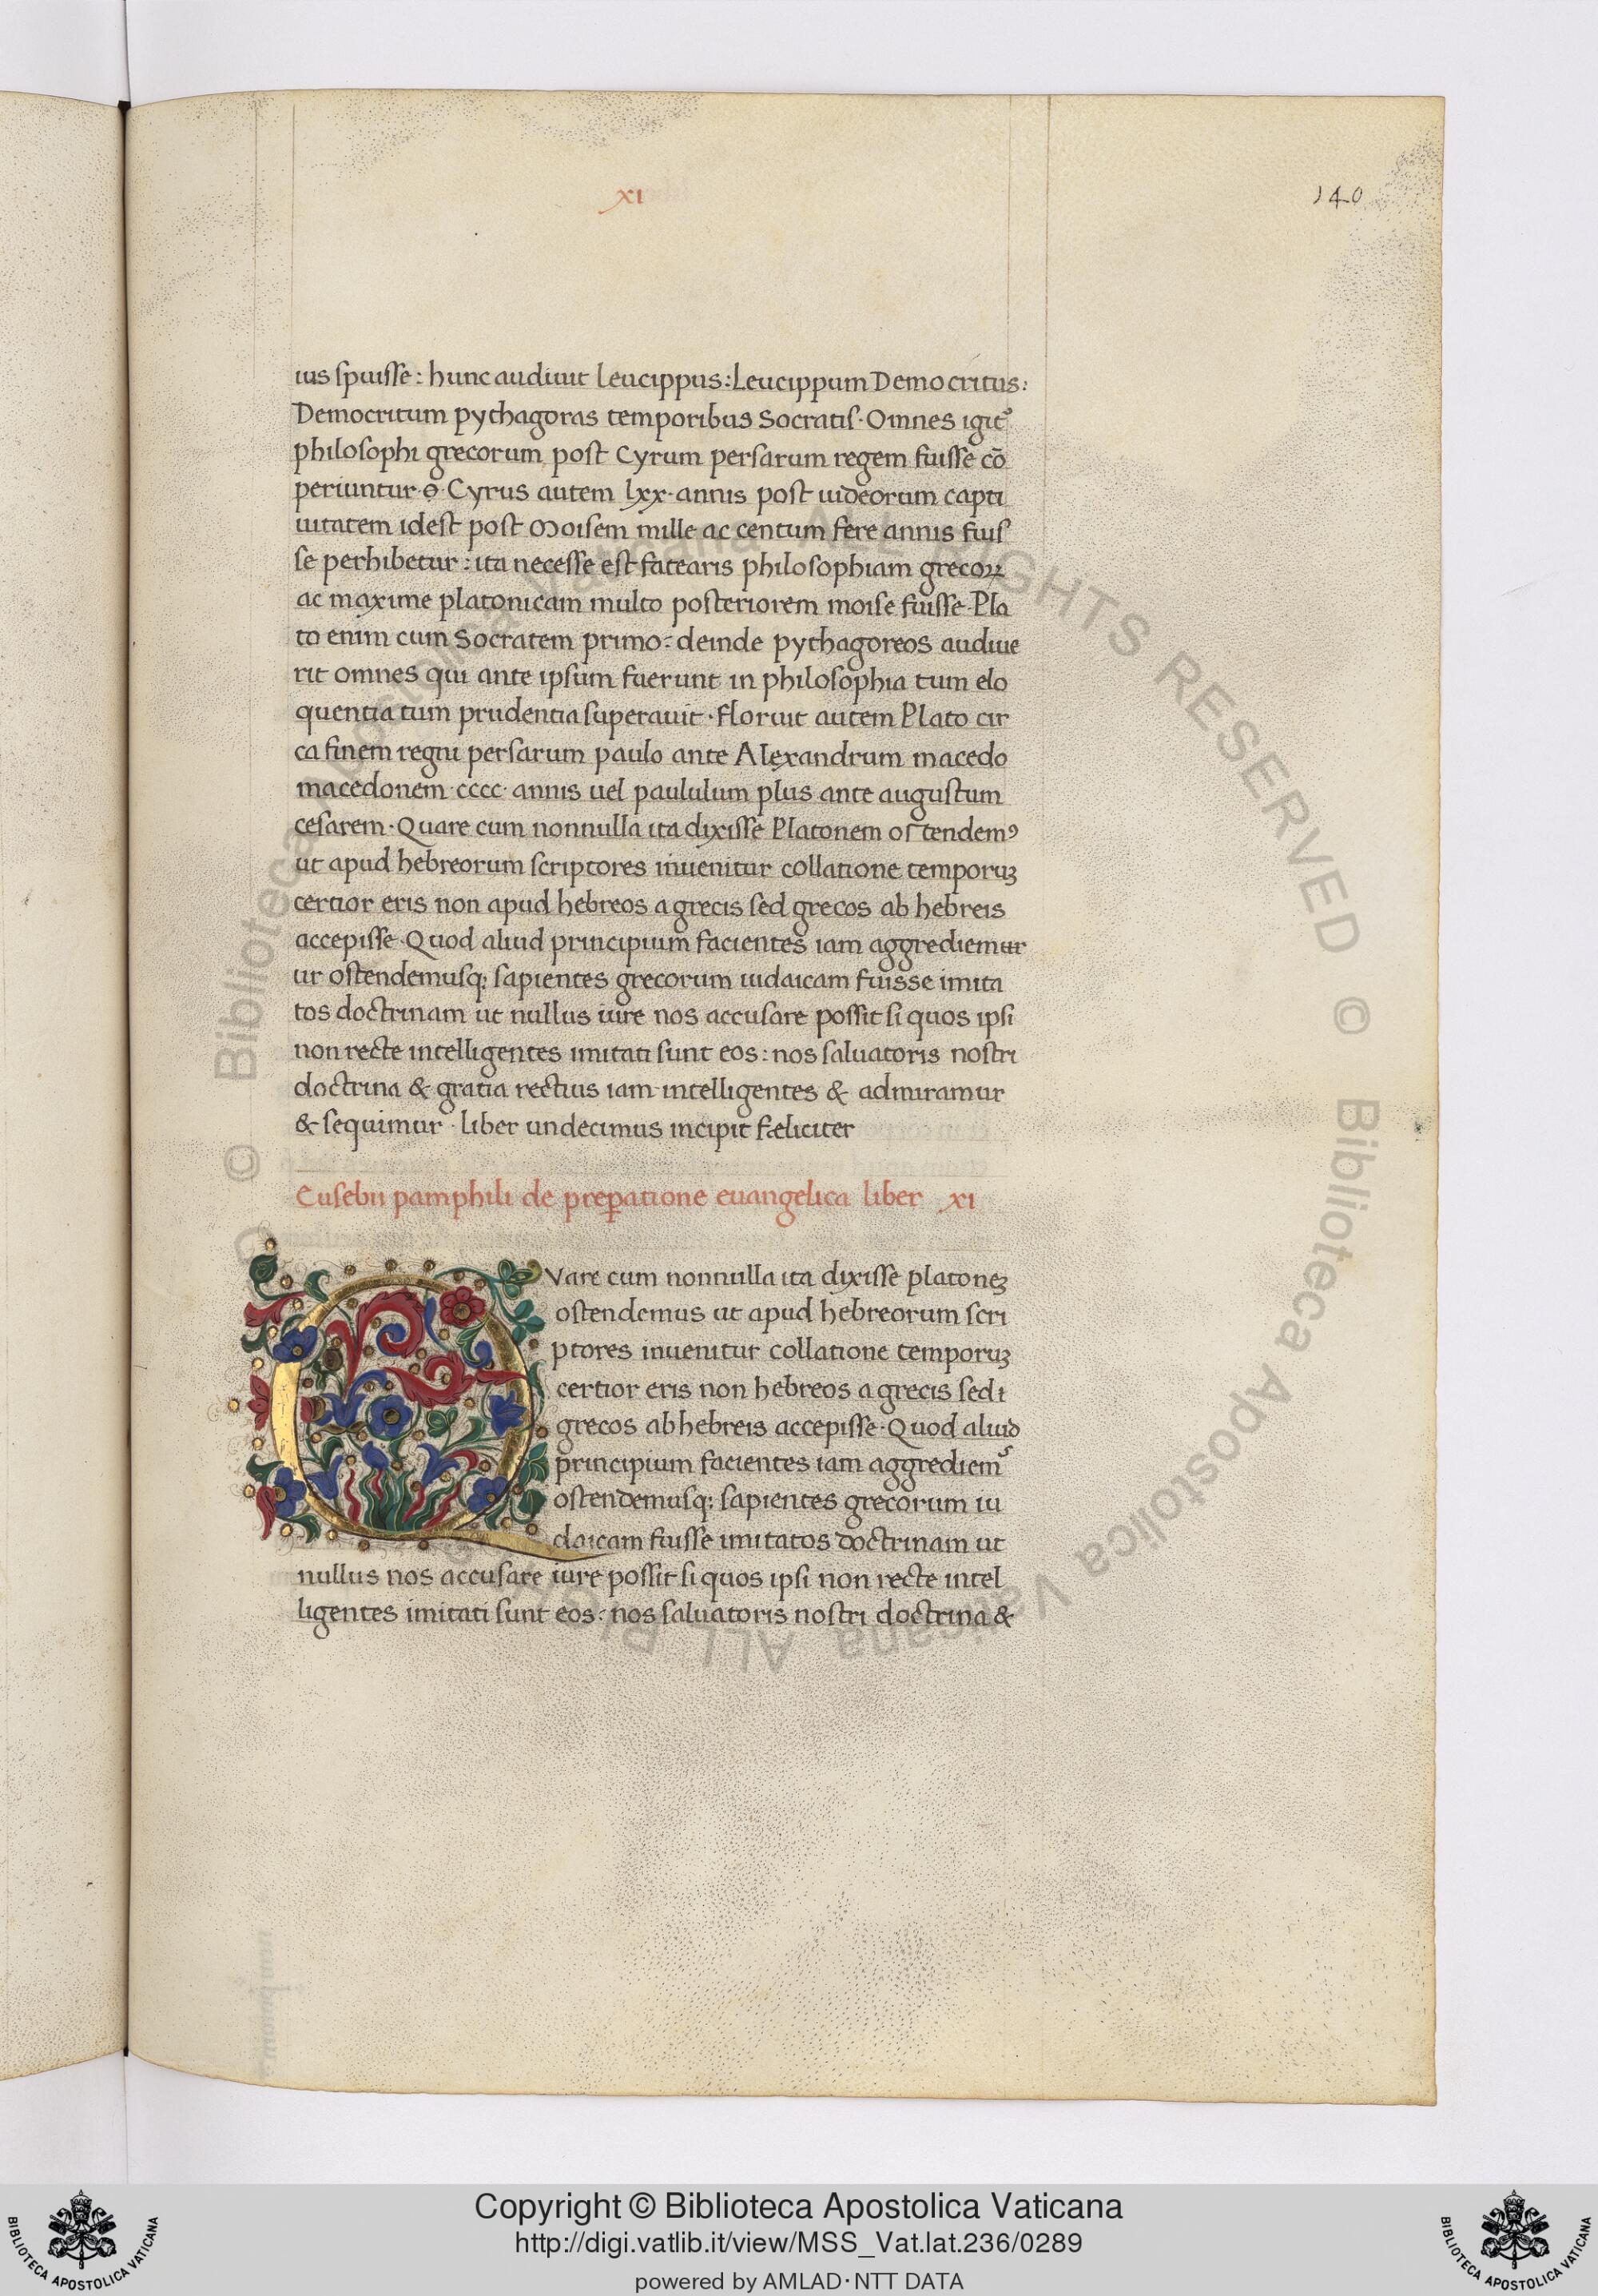 xi
140
ius spuisse: hunc audiuit leucippus: Leucippum Democritus:
Democritum pythagoras temporibus Socratis· Omnes igit᷑
philosophi grecorum post Cyrum persarum regem fuisse cõ
periuntur· Cyrus autem lxx· annis post iudeorum capti
uitatem idest post Moisem mille ac centum fere annis fuis
se perhibetur: ita necesse est fatearis philosophiam grecoꝝ
ac maxime platonicam multo posteriorem moise fuisse· Pla
to enim cum Socratem primo: deinde pythagoreos audiue
rit omnes qui ante ipsum fuerunt in philosophia tum elo
quentia tum prudentia superauit· floruit autem Plato cir
ca finem regni persarum paulo ante Alexandrum macedo
macedonem· cccc· annis uel paululum plus ante augustum
cesarem· Quare cum nonnulla ita dixisse Platonem ostendemꝰ
ut apud hebreorum scriptores inuenitur collatione temporuꝫ
certior eris non apud hebreos a grecis sed grecos ab hebreis
accepisse· Quod aliud principium facientes iam aggrediemur
ur ostendemusqꝫ sapientes grecorum iudaicam fuisse imita
tos doctrinam ut nullus iure nos accusare possit si quos ipsi
non recte intelligentes imitati sunt eos: nos saluatoris nostri
doctrina & gratia rectius iam intelligentes & admiramur
& sequimur· liber undecimus incipit fæliciter
Eusebii pamphili de prep̲atione euangelica liber xi
QVare cum nonnulla ita dixisse platoneꝫ
ostendemus ut apud hebreorum scri
ptores inuenitur collatione temporuꝫ
certior eris non hebreos a grecis sed i
grecos ab hebreis accepisse· Quod aliud
principium facientes iam aggrediem᷑
ostendemusqꝫ sapientes grecorum iu
daicam fuisse imitatos doctrinam ut
nullus nos accusare iure possit si quos ipsi non recte intel
ligentes imitati sunt eos: nos saluatoris nostri doctrina &
© Biblioteca Apostolica Vaticana ALL RIGHTS RESERVED
Copyright © Biblioteca Apostolica Vaticana
http://digi.vatlib.it/view/MSS_Vat.lat.236/0289
powered by AMLAD·NTT DATA
BIBLIOTECA APOSTOLICA VATICANA
BIBLIOTECA APOSTOLICA VATICANA